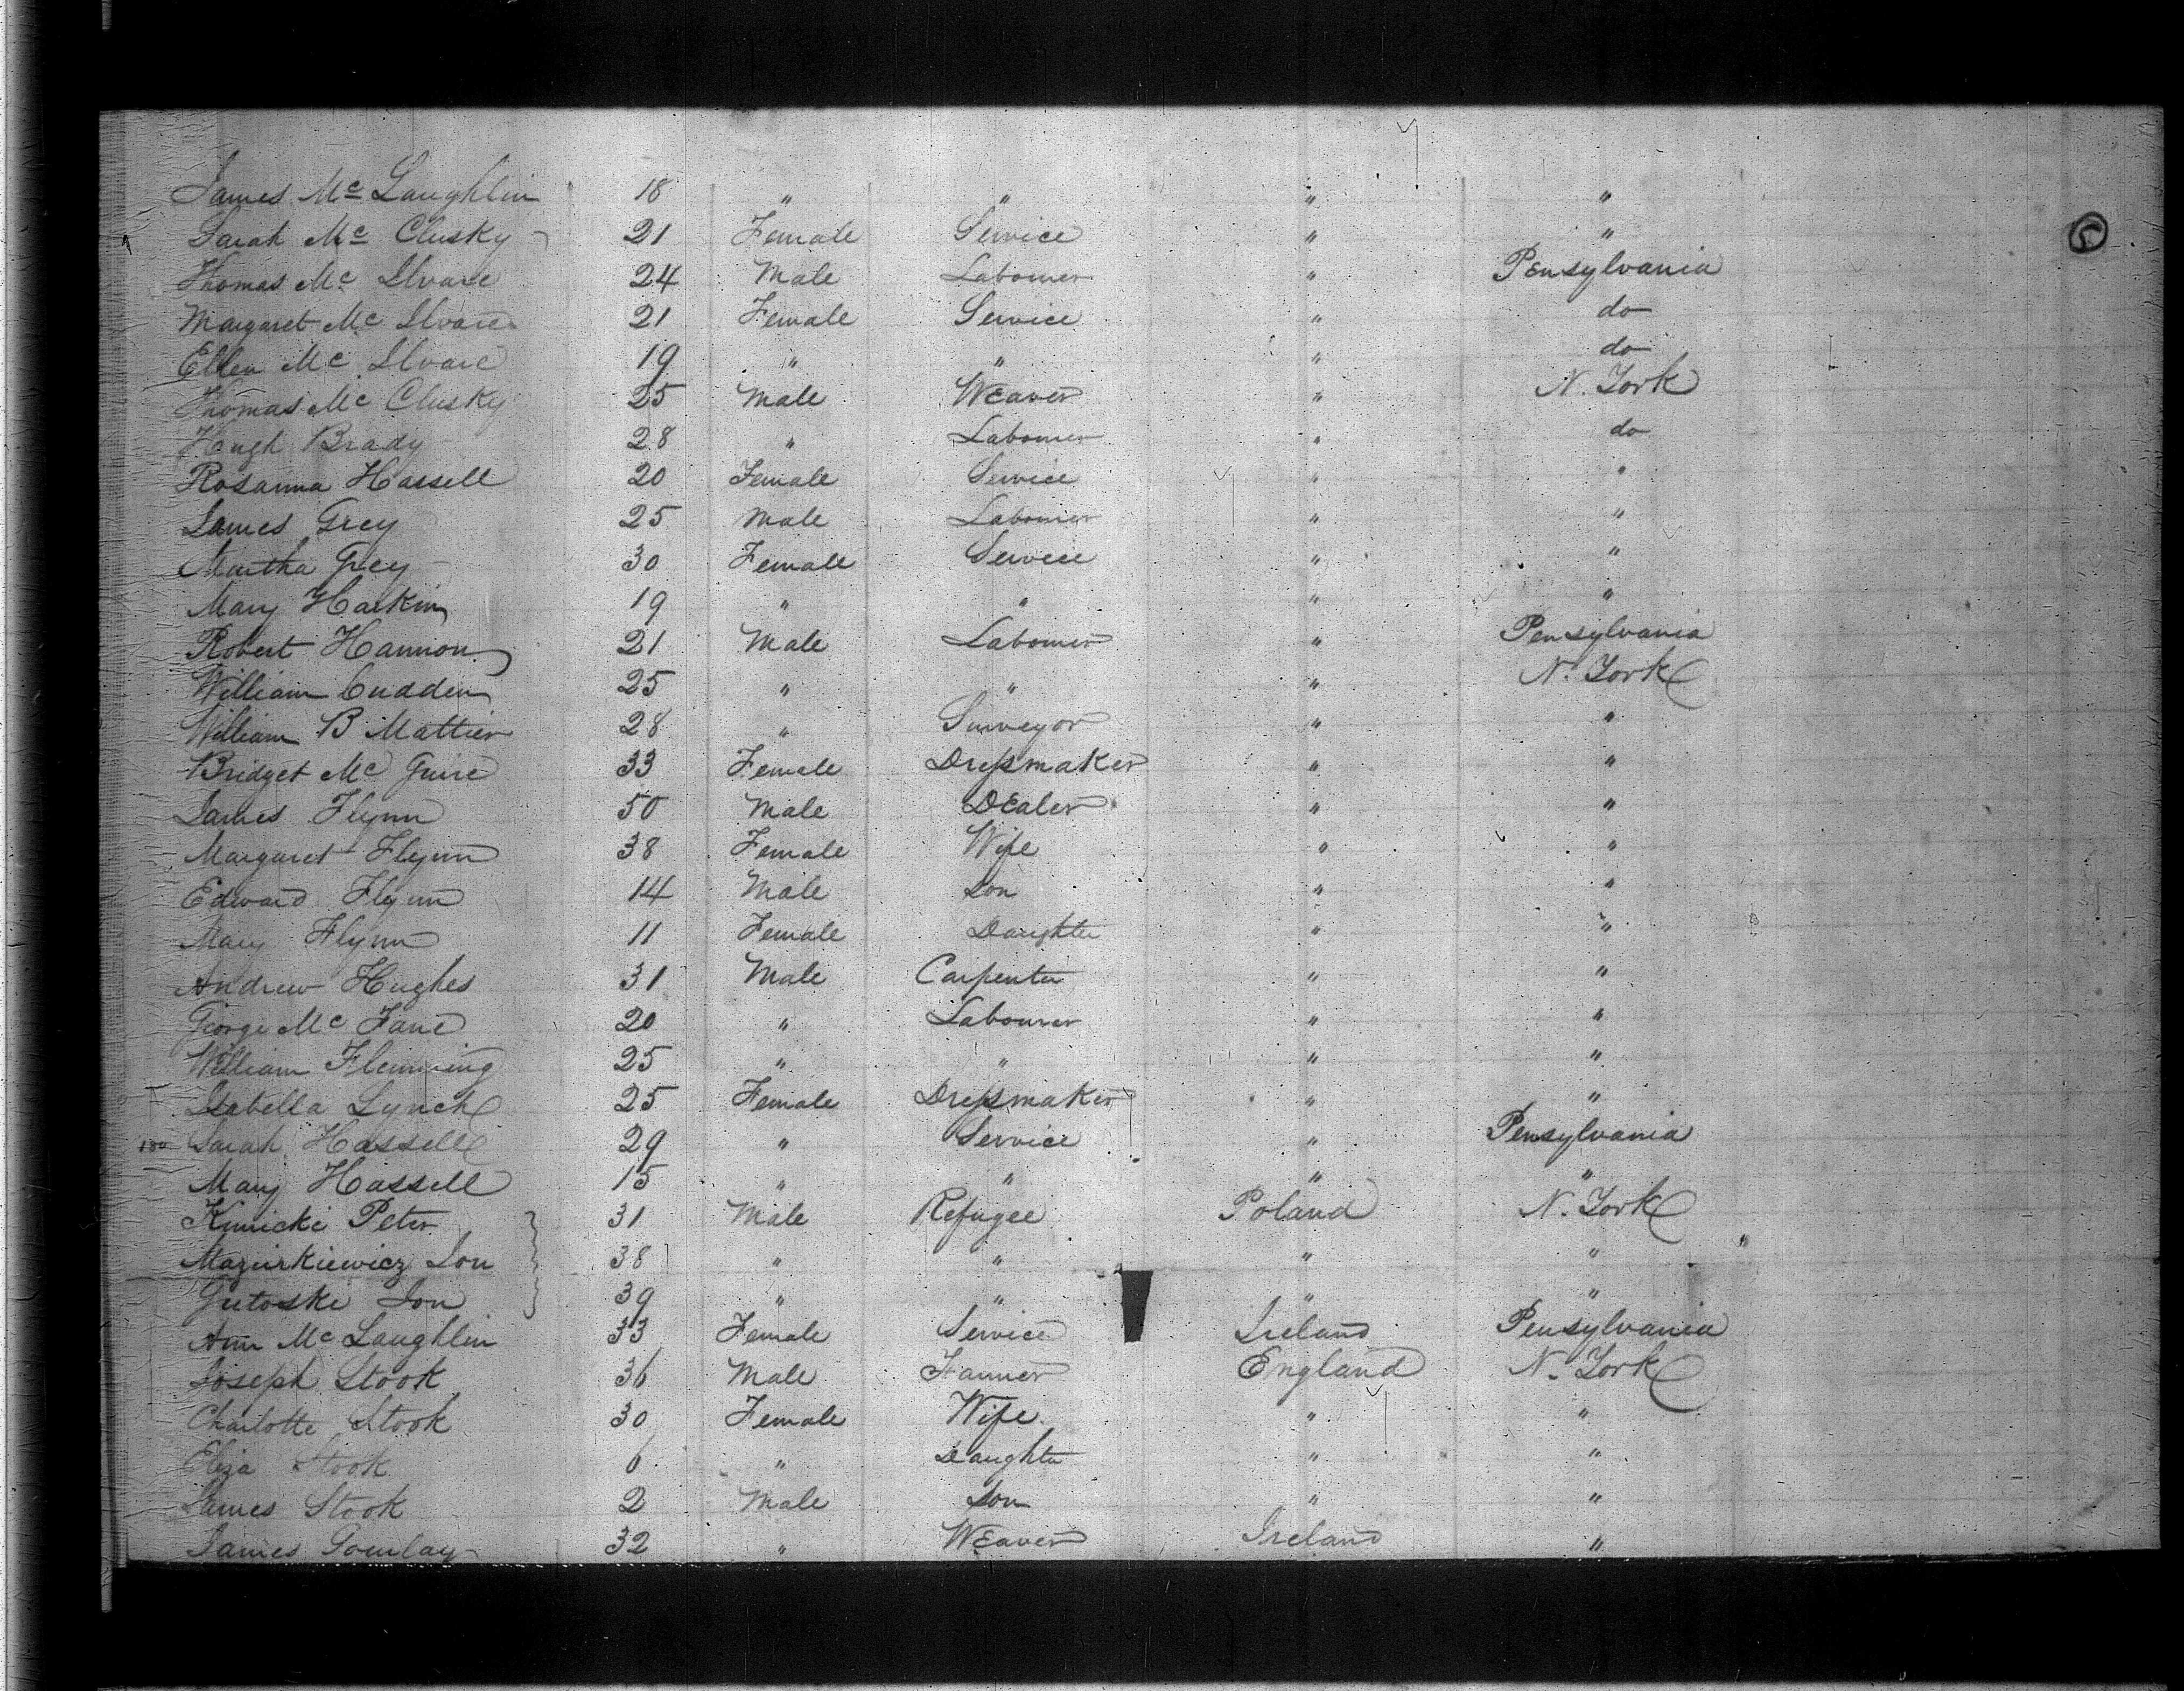 James Mc Laughlin 18 " " " "
Sarah Mc Clusky 21 Female Service " "
Thomas Mc Ilvare 24 Male Labourer " Pensylvania
Margaret Mc Ilvare 21 Female Service " do
Ellen Mc Ilvare 19 " " " do
Thomas Mc Clusky 25 Male Weaver " N. York
Hugh Brady 28 " Labourer " do
Rosanna Hassell 20 Female Service " "
James Grey 25 Male Labourer " "
Martha Grey 30 Female Service " "
Mary Harkin 19 " " " "
Robert Hannon 21 Male Labourer " Pensylvania
William Cudden 25 " " " N. York
William B Mattier 28 " Surveyor " "
Bridget Mc Guire 33 Female Dressmaker " "
James Flynn 50 Male Dealer " "
Margaret Flynn 38 Female Wife " "
Edward Flynn 14 Male Son " "
Mary Flynn 11 Female Daughter " "
Andrew Hughes 31 Male Carpenter " "
George Mc Fane 20 " Labourer " "
William Flemming 25 " " " "
Isabella Lynch 25 Female Dressmaker " "
180 Sarah Hassell 29 " Service " Pensylvania
Mary Hassell 15 " " " "
Kimicki Peter 31 Male Refugee Poland N. York
Mazurkiewicz Ion 38 " " " " "
Gutoski Ion 39 " " " "
Ann Mc Laughlin 33 Female Service Ireland Pensylvania
Joseph Stook 36 Male Farmer England N. York
Charlotte Stook 30 Female Wife " "
Eliza Stook 6 " Daughter " "
James Stook 2 Male Son " "
James Gourlay 32 " Weaver Ireland "